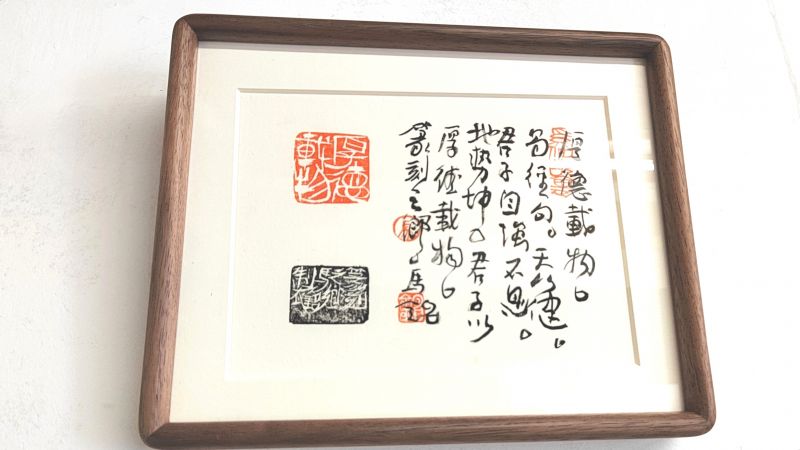 厚德載物。
易經句。天行健。
君子自強不息。
地势坤。君子以
厚德載物。
篆刻之鄉馬
厚德
載物